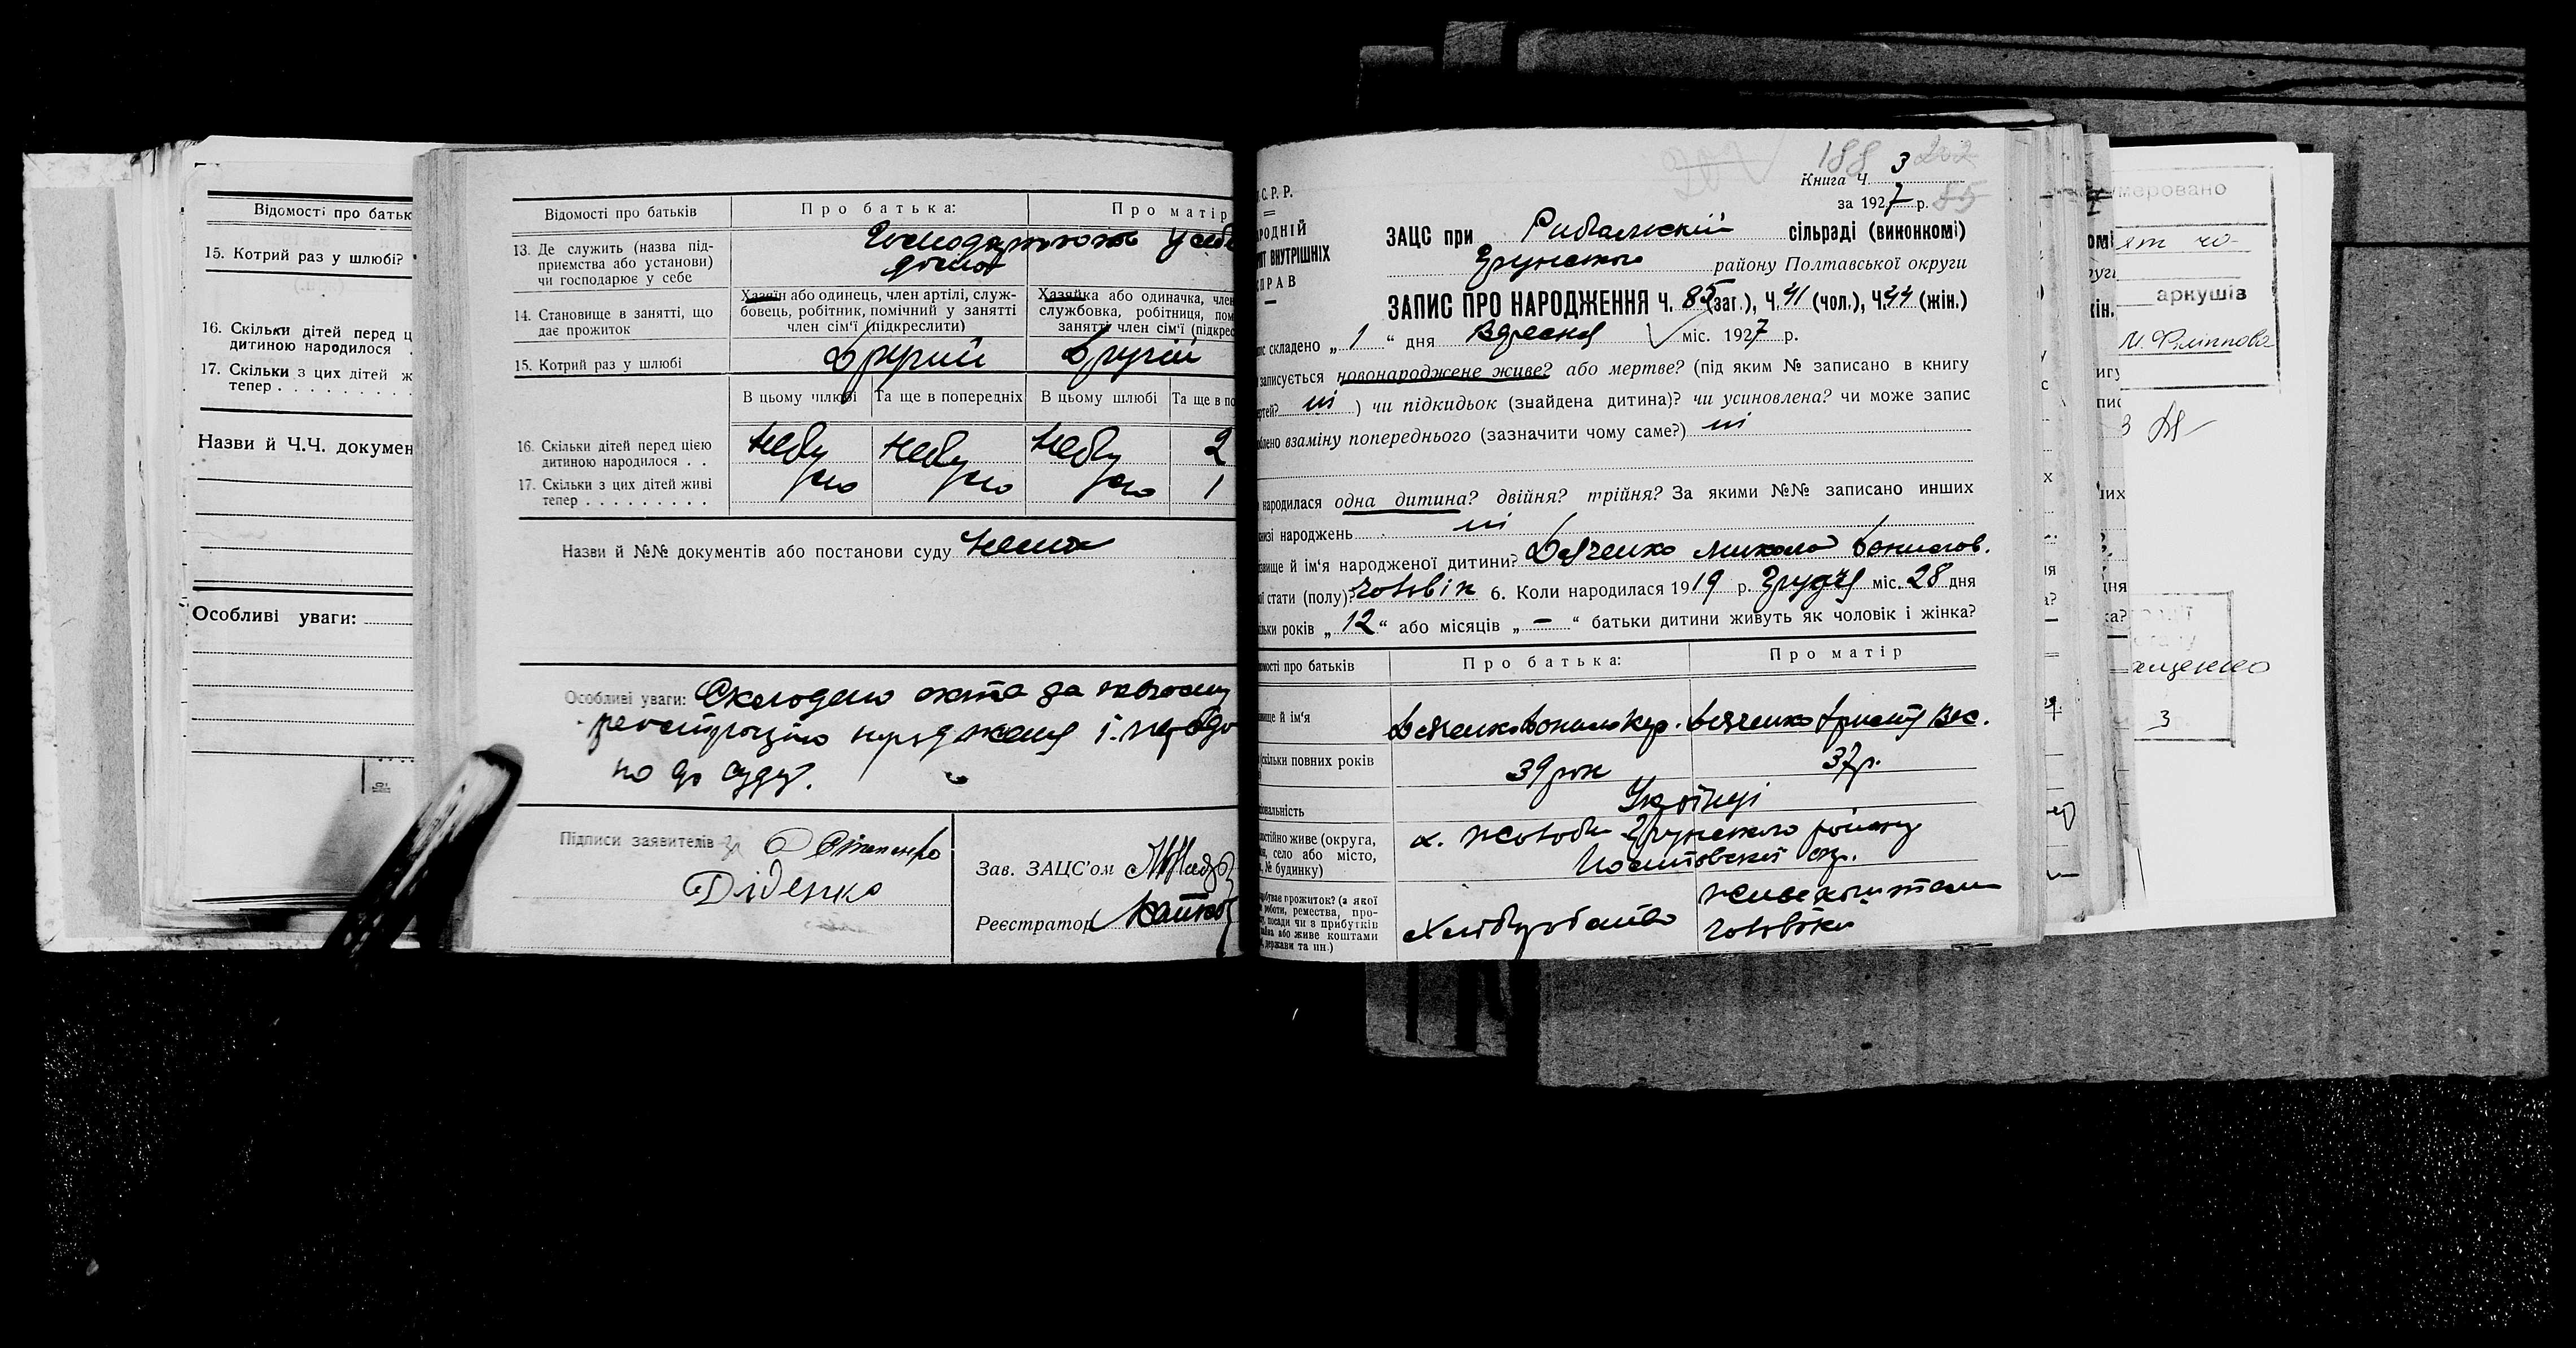 Відомості про батьк
15. Котрий раз у шлюбі?
16. Скільки дітей перед ц
дитиною народилося .
17. Скільки з цих дітей ж
тепер . . . . . . . .
Назви й Ч.Ч. докумен
Особливі уваги:
Відомості про батьків
Про батька:
Про матір
13. Де служить (назва під-
приємства або установи)
чи господарює у себе
Господарює у себе
дома
14. Становище в занятті, що
дає прожиток
Хазяїн або одинець, член артілі, служ-
бовець, робітник, помічний у занятті
член сім'ї (підкреслити)
Хазяйка або одиначка, член
службовка, робітниця, пом
занятті член сім'ї (підкрес
15. Котрий раз у шлюбі
Другий
Другий
В цьому шлюбі
Та ще в попередніх
В цьому шлюбі
Та ще в по
16. Скільки дітей перед цією
дитиною народилося . .
17. Скільки з цих дітей живі
тепер . . . . . . . . .
Небу
ло
Небу
ло
Небу
ло
2
1
Назви й №№ документів або постанови суду Нема
Особливі уваги: Складено акта за
реєстрацію народження і
но до суду.
Підписи заявителів за
Діденко
Зав. ЗАЦС'ом
Реєстратор
С. Р. Р.
РОДНІЙ
ВНУТРІШНІХ
ПРАВ
188 3 202
Книга Ч.
за 1927 р. 85
ЗАЦС при Рибальській сільраді (виконкомі)
Грунського району Полтавської округи
ЗАПИС ПРО НАРОДЖЕННЯ Ч. 85 (заг.), Ч. 41 (чол.), Ч. 44 (жін.)
складено „ 1 “ дня Вересня міс. 1927 р.
записується новонароджене живе? або мертве? (під яким № записано в книгу
ні ) чи підкидьок (знайдена дитина)? чи усиновлена? чи може запис
взаміну попереднього (зазначити чому саме?) ні
народилася одна дитина? двійня? трійня? За якими №№ записано инших
народжень ні
й ім'я народженої дитини? Дяченко Микола Данилов.
стати (полу)? Чоловік 6. Коли народилася 1919 р. Грудня міс. 28 дня
років „ 12 “ або місяців „ – “ батьки дитини живуть як чоловік і жінка?
про батьків
Про батька:
Про матір
й ім'я
Дяченко Данило Кир.
Дяченко Христя Вас.
скільки повних років
39 рок
37 р.
Українці
живе (округа,
село або місто,
№ будинку)
х. Жолоби Грунського району
Полтавської окр.
прожиток? (з якої
роботи, ремества, про-
посади чи з прибутків
або живе коштами
держави та ин.)
Хліборобство
Живе коштами
чоловіка
умеровано
аркушів
М. Філіппова
3